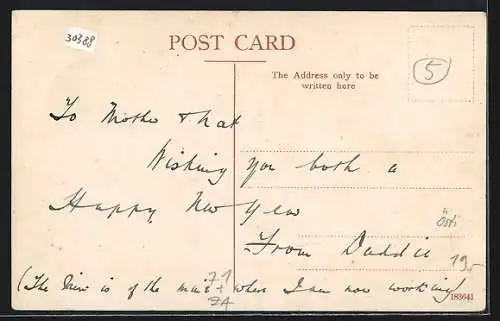 30338
POST CARD
The Address only to be
written here
5
To Mother & Nat
Wishing you both a
Happy New Year
From Daddie
Östi
195
(The View is of the mine + where I am now working)
183641